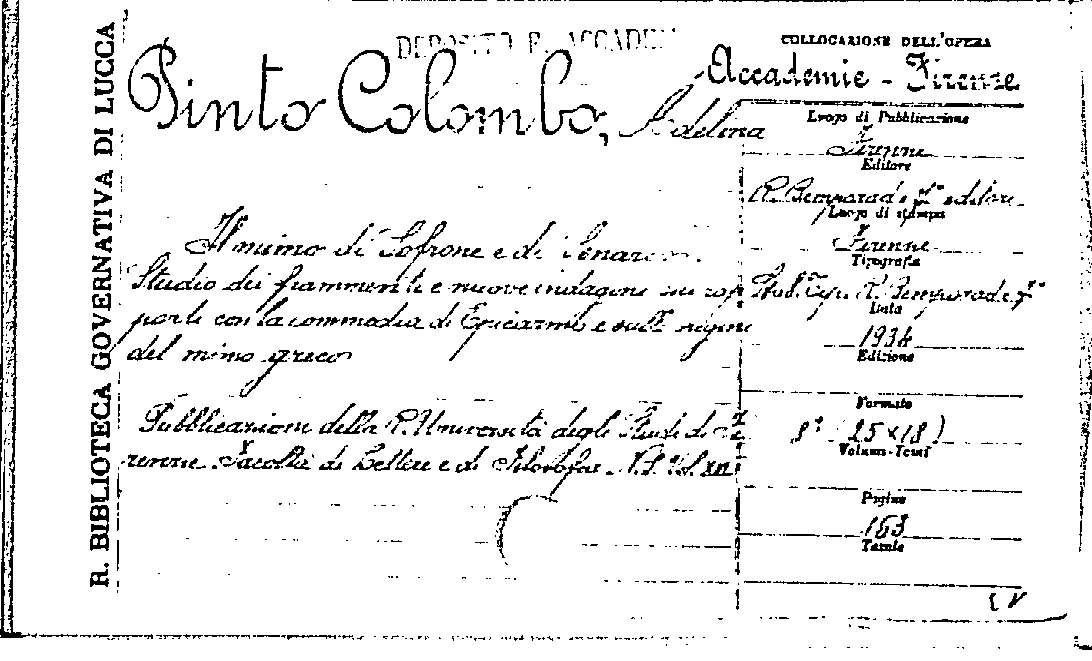 R. BIBLIOTECA GOVERNATIVA DI LUCCA
DEPOSITO R. ACCADEM
Pinto Colombo, Adelina
Il mimo di Sofrone e di Senarco.
Studio dei frammenti e nuove indagini sui rap
porti con la commedia di Epicarmo e sull' origine
del mimo greco
Pubblicazioni della R. Università degli Studi di Fi
renze. Facoltà di Lettere e di Filosofia. N.S. Vol. XII
COLLOCAZIONE DELL'OPERA
Accademie - Firenze
Luogo di Pubblicazione
Firenze
Editore
R. Bemporad e f.° editore
Luogo di stampa
Firenze
Tipografia
Stab. Tip. R. Bemporad e f.°
Data
1934
Edizione
Formato
8° (25×18)
Volum-Tomi
Pagine
163
Tavole